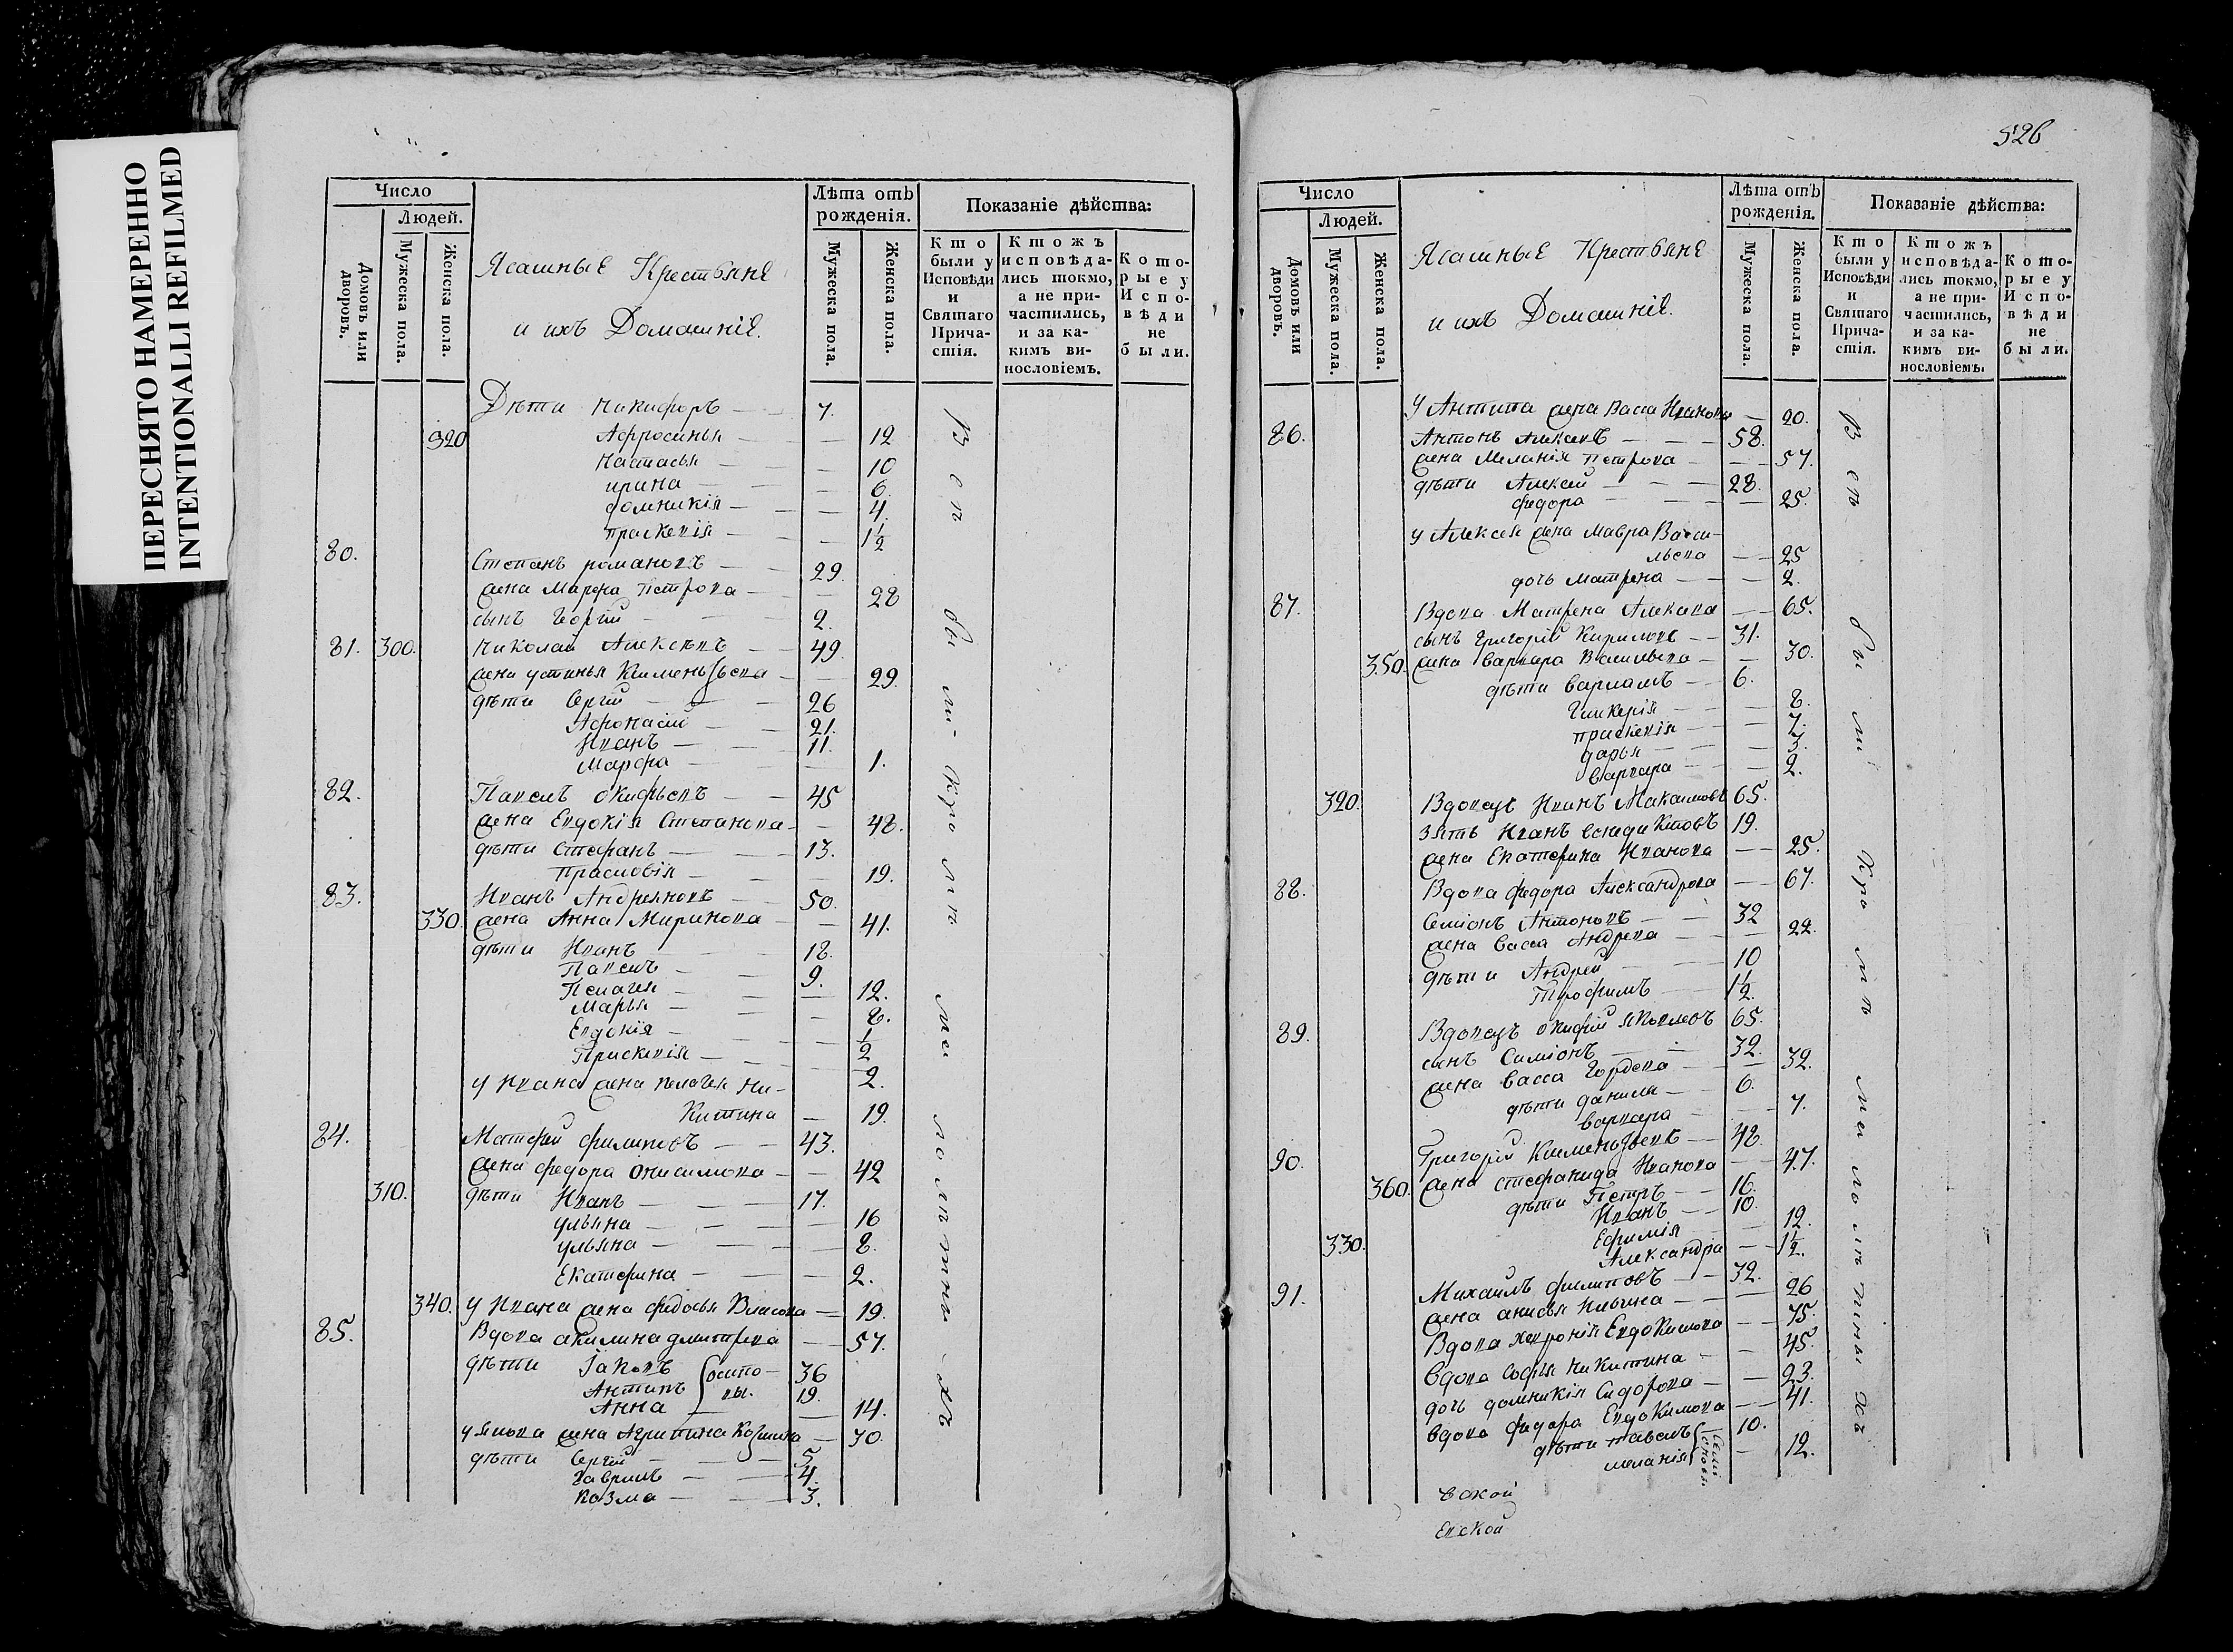 ПЕРЕСНЯТО НАМЕРЕННО
INTENTIONALLI REFILMED
Число
Людей.
Домовъ или дворовъ.
Мужеска пола.
Женска пола.
Ясашные Крестьяне
и ихъ Домашніе.
Лѣта отъ рожденія.
Мужеска пола.
Женска пола.
Показаніе дѣйства:
Кто были у Исповѣди и Святаго Причастія.
Ктожъ исповѣдались токмо, а не причастились, и за какимъ винословіемъ.
Которые у Исповѣди не были.
Дѣти Никифоръ 7.
320 Афросинья 12
Настасья 10
ирина 6.
домникія 4.
праскевія 1 1/2
80. Степанъ романовъ 29.
жена Марфа Петрова 28
сынъ Георгій 2.
81. 300. Николай Алексѣевъ 49
жена устинья Клементьева 29.
дѣти Сергій 26
Афонасій 21.
Иванъ 11.
Марфа 1.
82. Павелъ окифьевъ 45
жена Евдокія Степанова 48.
дѣти Стефанъ 13.
Прасковія 19.
83. Иванъ Андреяновъ 50.
330. жена Анна Миринова 41.
дѣти Иванъ 18.
Павелъ 9.
Пелагея 12.
Марья 8.
Евдокія 1/2
Праскевія 2.
у Ивана жена пелагея Ни-
китина 19.
84. Матфей филиповъ 43.
жена федора онисимова 42
310. дѣти Иванъ 17.
ульяна 16
ульяна 8.
Екатерина 2.
340. у Ивана жена федосья Власова 19.
85. Вдова акилина дмитрева 57.
дѣти Іаковъ 36
Антипъ осипо- 19.
Анна вы. 14.
у Якова жена Агрипина Козмина 30.
дѣти Сергій 5
гаврилъ 4.
козма 3.
Всѣ были Кромѣ малолѣтныхъ
526
Число
Людей.
Домовъ или дворовъ.
Мужеска пола.
Женска пола.
Ясашные Крестьяне
и ихъ Домашніе.
Лѣта отъ рожденія.
Мужеска пола.
Женска пола.
Показаніе дѣйства:
Кто были у Исповѣди и Святаго Причастія.
Ктожъ исповѣдались токмо, а не причастились, и за какимъ винословіемъ.
Которые у Исповѣди не были.
У Антипа жена Васса Иванова 20.
86. Антонъ Алексѣевъ 58.
жена Меланія Петрова 57.
дѣти Алексѣй 28.
федора 25.
у Алексѣя жена мавра Васи-
льева 25
дочь Матрена 2.
87. Вдова Матрена Алексѣева 65.
сынъ Григорій Кириловъ 31.
350. жена варвара Васильева 30.
дѣти варламъ 6.
Гликерія 8.
праскевія 7.
дарья 3.
варвара 2.
320. Вдовецъ Иванъ Максимовъ 65.
зять Иванъ венедиктовъ 19.
жена Екатерина Иванова 25.
88. Вдова федора Александрова 67.
Семіонъ Антоновъ 32
жена васса Андрева 22.
дѣти Андрей 10
Трофимъ 1 1/2.
89. Вдовецъ окифій яковлевъ 65.
сынъ Симіонъ 32.
жена васса Гордева 32.
дѣти данила 6.
варвара 7.
90. Григорій Клементьевъ 48.
360. жена стефанида Иванова 47.
дѣти Петръ 16.
Иванъ 10.
Ефимія 12.
330. Александра 1 1/2.
91. Михаилъ филиповъ 32.
жена анисья Ильина 26
Вдова хевронія Евдокимова 75.
вдова софья никитина 45.
дочь домникія Сидорова 23.
вдова федора Евдокимова 41.
дѣти павелъ 10.
меланія 12.
Всѣ были Кромѣ малолѣтныхъ
вской
евской